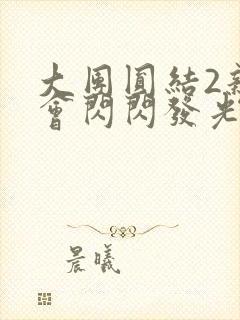 大團圓結2新
會閃閃發光
晨曦